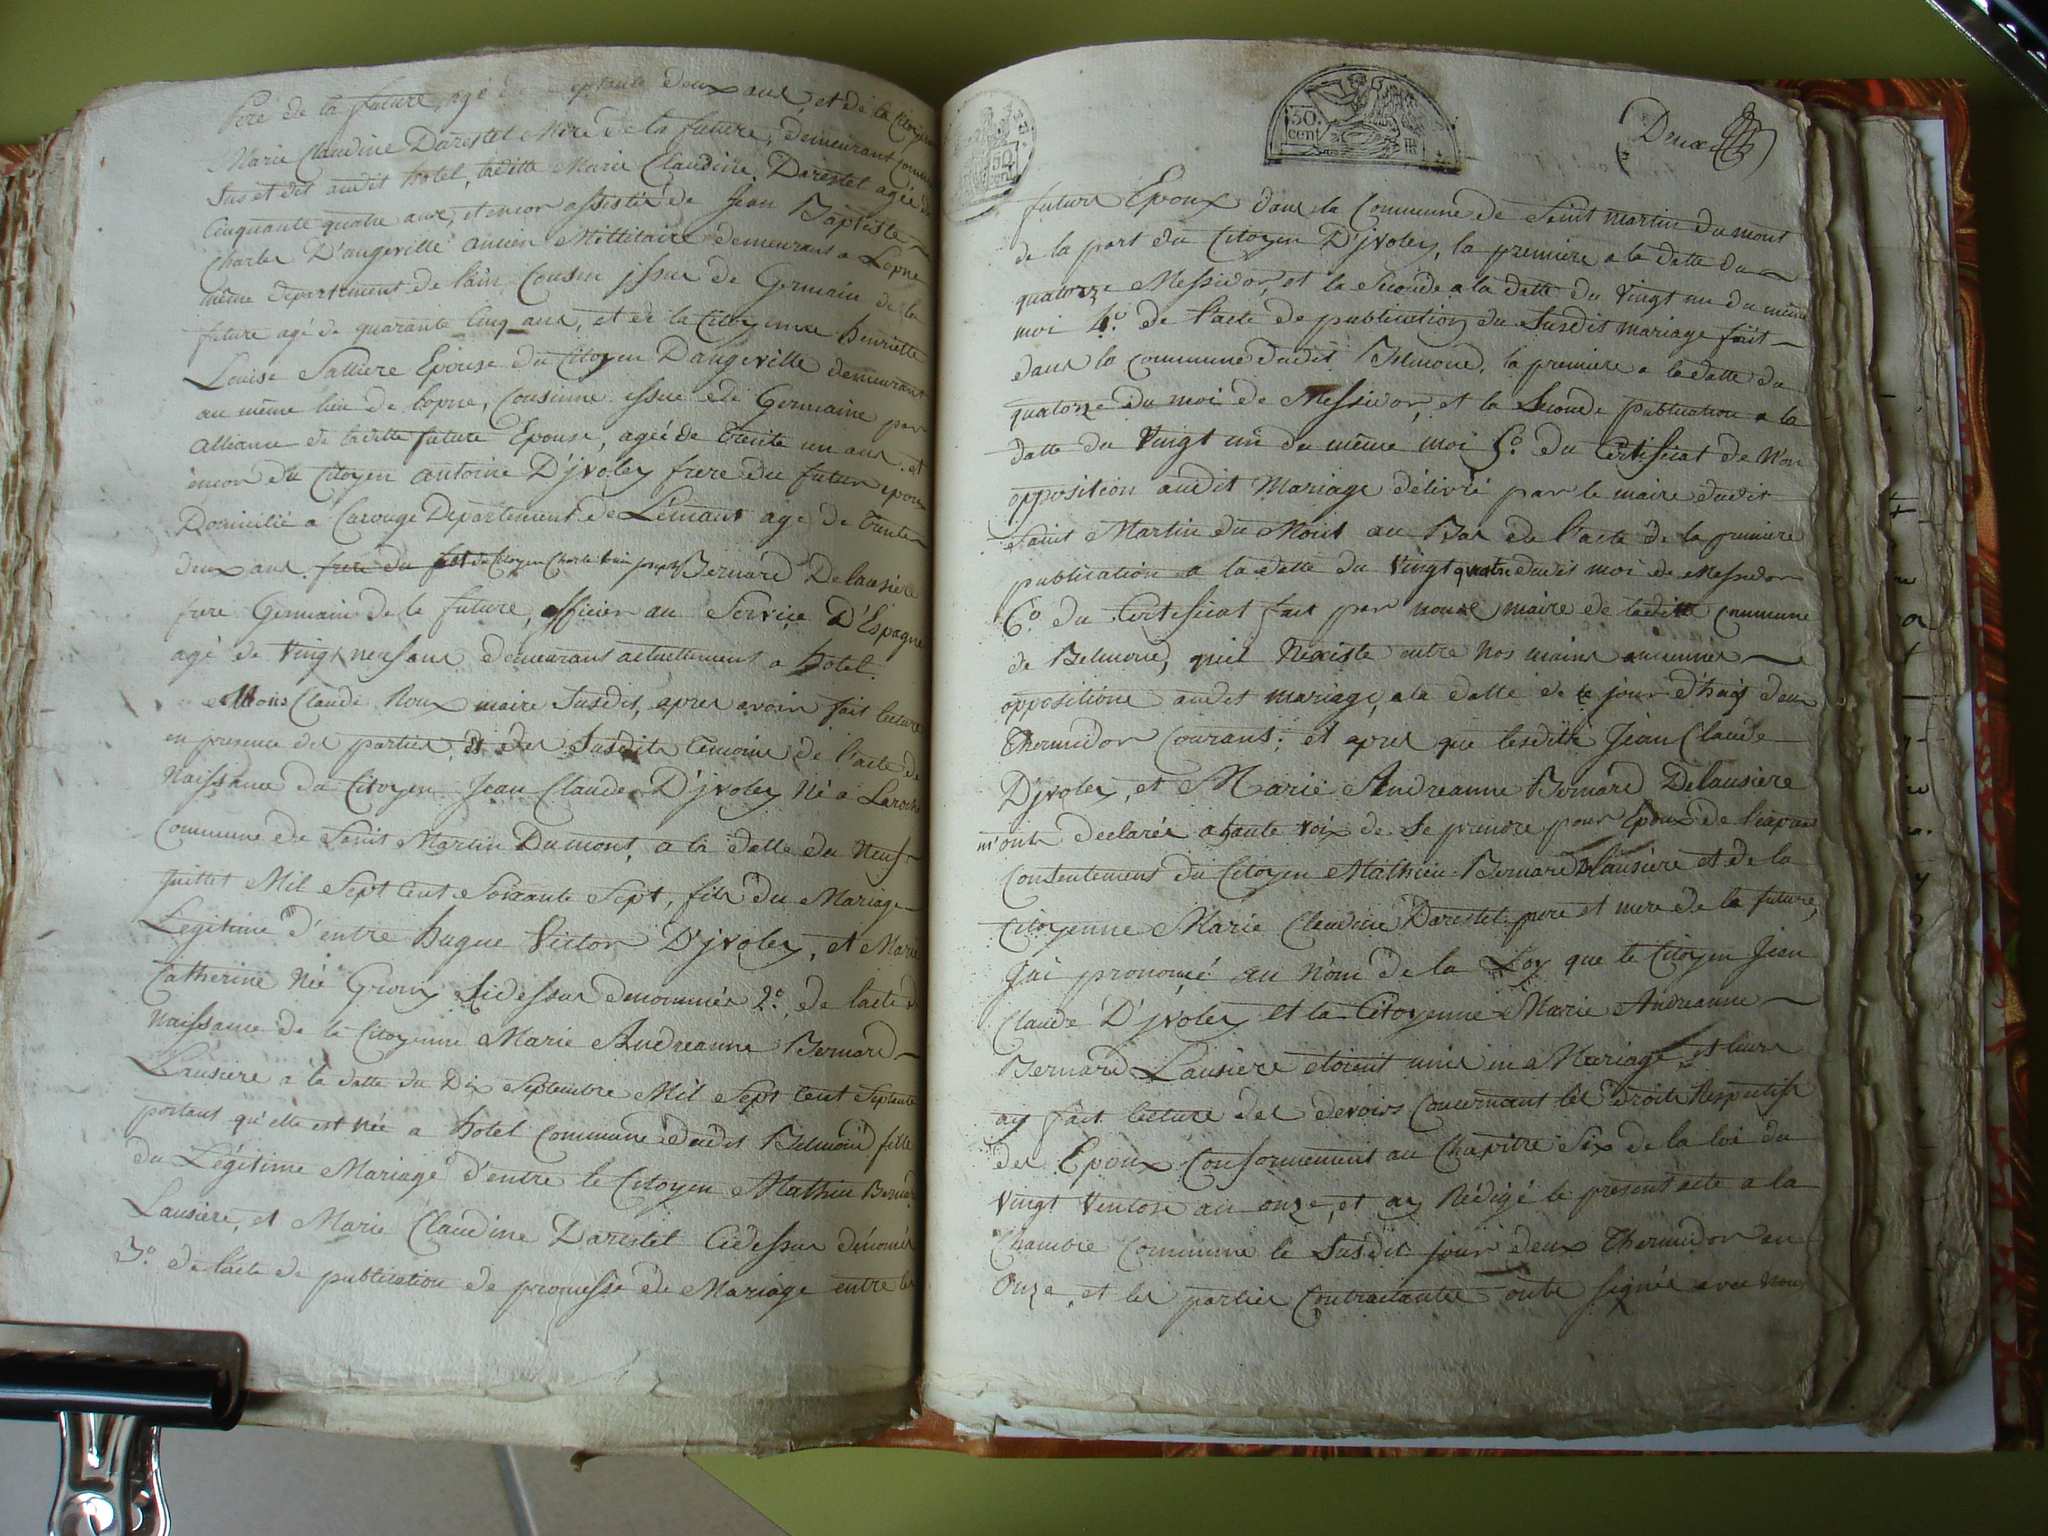 Pere de la future, agé de septante deux ans, et de la Citoyenne
Marie Claudine Darestel Mere de la future, demeurant comme
Sus et dit audit hotel, laditte Marie Claudine Darestel agée de
Cinquante quatre ans, et encor assistée de Jean Baptiste
Charles D'angeville ancien Millitaire demeurant a Lopne
même departement de l'ain Cousin issus de Germain de la
future agé de quarante Cinq ans, et de la Citoyenne henriette
Louise Salliere Epouse du Citoyen Dangeville demeurant
au même lieu de lopne, Cousinne issue de Germaine par
Alliance de laditte future Epouse, ageé de trente un ans. et
encor du Citoyen antoine D'jvoley frere du futur epoux
Domicilié a Carouge Departement de Lémans agé de trente
deux ans. frere du et du Citoyen Charle Louis joseph Bernard Delausiere
frere Germain de la future, officier au Service D'Espagne
agé de Vingt neuf ans demeurans actuellement a hotel.
Moi Claude Roux maire Susdit, apres avoir fait lecture
en presence des parties, et des Susdits temoins de l'acte de
Naissance du Citoyen Jean Claude D'jvoley Né a Laroche
Commune de Saint Martin Dumont, a la datte du Neuf
juillet Mil Sept Cent Soixante Sept, fils du Mariage
Légitime d'entre hugue Victor D'jvoley, et Marie
Catherine Née Cidessus denommés 2.º de l'acte de
Naissance de la Citoyenne Marie Andreanne Bernard
Lausiere a la datte du Dix Septembre Mil Sept Cent Septente
portant qu'elle est Née a hotel Commune dudit Belmond fille
du Légitime Mariage d'entre le Citoyen Mathieu Bernard
Lausiere, et Marie Claudine Darestel Cidessus dénomés
3.º de l'acte de publication de promesse de Mariage entre les
50 cent
50. cent
Deux
futurs Epoux dans la Commune de Saint martin du mont
de la part du Citoyen D'jvoley, la premiere a la datte du
quatorze Messidor, et la Seconde a la datte du Vingt un du même
moi 4.º de l'acte de publication du Susdit mariage fait
dans la Commune dudit Belmond, la premiere a la datte du
quatorze du moi de Messidor, et la Seconde publication a la
datte du Vingt un du même moi 5.º du Certificat de Non
opposition audit Mariage délivré par le maire dudit
Saint Martin du Mont au Bas de l'acte de la premiere
publication a la datte du Vingt quatre dudit moi de Messidor
6.º du Certificat fait par nous maire de laditte Commune
de Belmond, qu'il N'existe entre Nos mains aucunnes
oppositions audit mariage, a la datte de ce jour d'hui deux
Thermidor Courans; et apres que lesdits Jean Claude
D'jvoley, et Marie Andreanne Bernard Delausiere
m'ont declarés a haute voix de Se prendre pour Epoux de l'expres
Consentement du Citoyen Mathieu Bernard Delausiere et de la
Citoyenne Marie Claudine Darestel pere et mere de la future,
J'ai prononcé au Nom de la Loy que le Citoyen Jean
Claude D'jvoley et la Citoyenne Marie Andreanne
Bernard Lausiere étoient unis en Mariage, et leur
ay fait lecture des devoirs Concernant les droits Respectifs
des Epoux Conformement au Chapitre Six de la loi du
Vingt Ventose an onze, et ay Rédigé le present acte a la
Chambre Commune le Susdit jour deux Thermidor an
Onze, et les parties Contractantes onts signés avec Nous